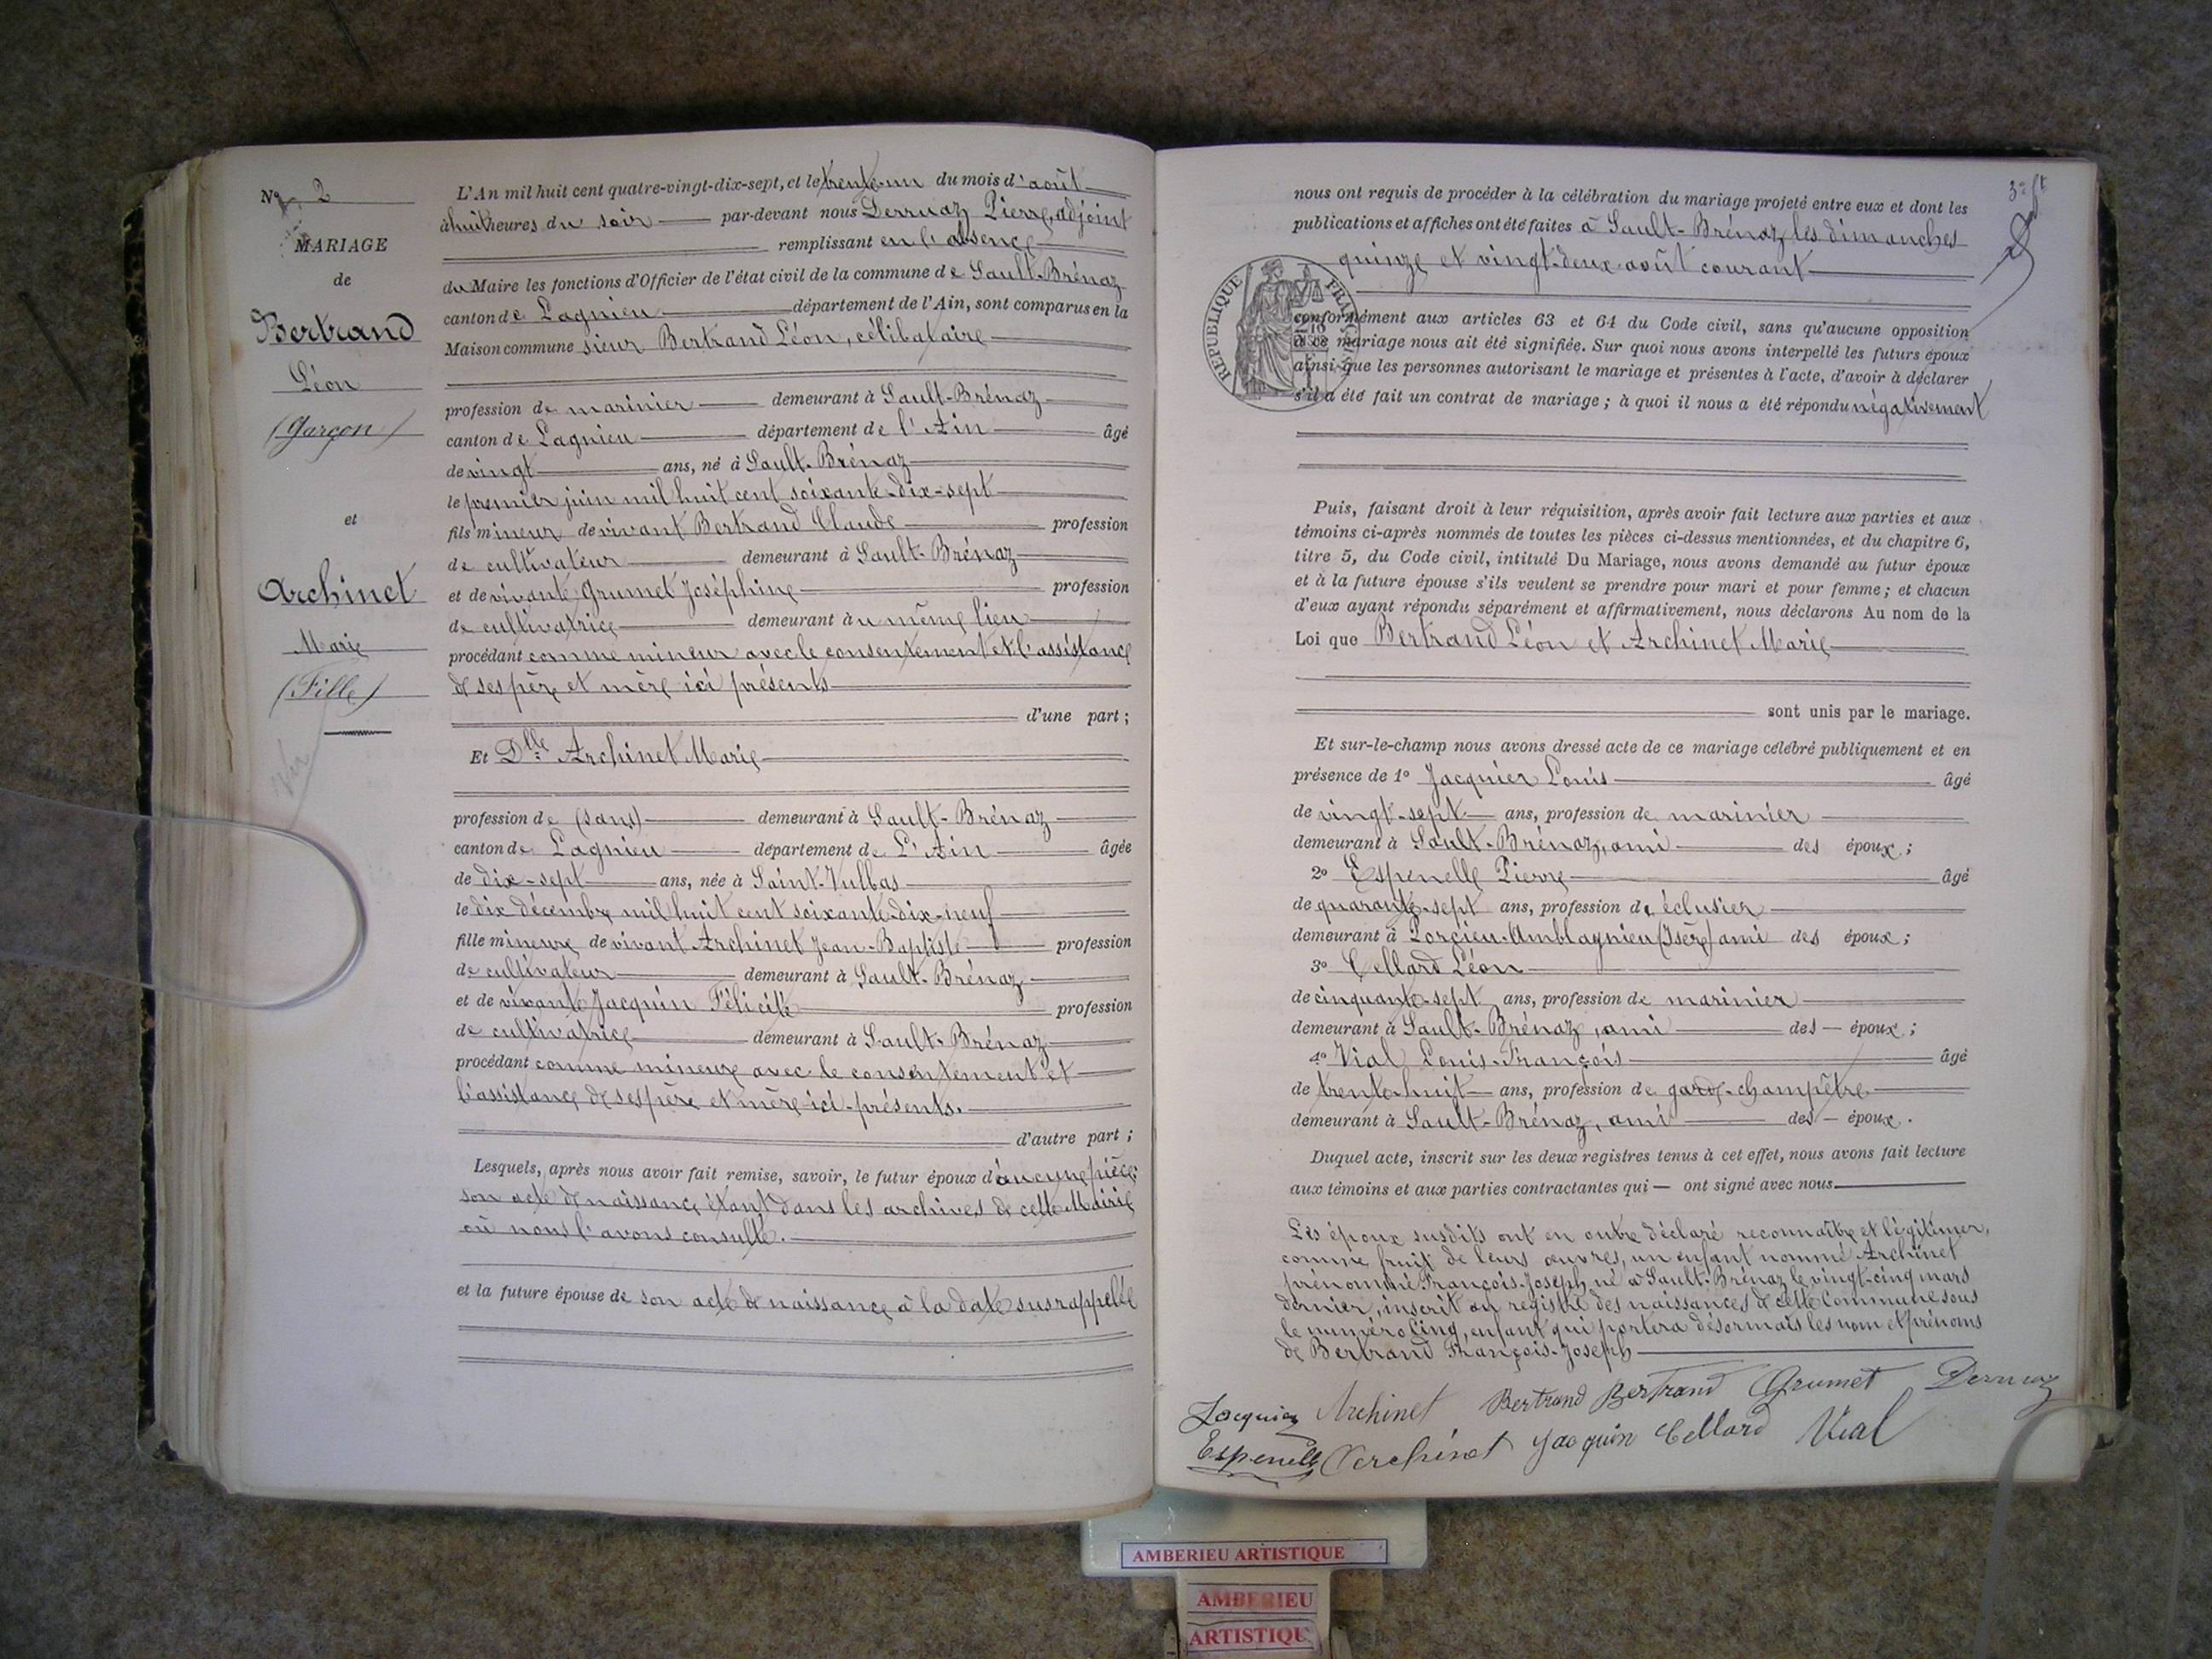 N° 2
MARIAGE
de
Bertrand
Léon
(Garçon)
et
Archinet
Marie
(Fille)
L'An mil huit cent quatre-vingt-dix-sept, et le trente-un du mois d'août
à huit heures du soir par-devant nous Dernaz Pierre, adjoint
remplissant en l'absence
du Maire les fonctions d'Officier de l'état civil de la commune de Sault-Brénaz
canton de Lagnieu département de l'Ain, sont comparus en la
Maison commune sieur Bertrand Léon, célibataire
profession de marinier demeurant à Sault-Brénaz
canton de Lagnieu département de l'Ain âgé
de vingt ans, né à Sault-Brénaz
le premier juin mil huit cent soixante-dix-sept
fils mineur de vivant Bertrand Claude profession
de cultivateur demeurant à Sault-Brénaz
et de vivante Grumet Joséphine profession
de cultivatrice demeurant au même lieu
procédant comme mineur avec le consentement et l'assistance
de ses père et mère ici présents
d'une part ;
Et Dlle Archinet Marie
profession de (sans) demeurant à Sault-Brénaz
canton de Lagnieu département de L'Ain âgée
de dix-sept ans, née à Saint-Vulbas
le dix décembre mil huit cent soixante-dix-neuf
fille mineure de vivant Archinet Jean-Baptiste profession
de cultivateur demeurant à Sault-Brénaz
et de vivante Jacquin Félicité profession
de cultivatrice demeurant à Sault-Brénaz
procédant comme mineure avec le consentement et
l'assistance de ses père et mère ici-présents.
d'autre part ;
Lesquels, après nous avoir fait remise, savoir, le futur époux d'aucune pièce;
son acte de naissance étant dans les archives de cette Mairie
où nous l'avons consulté.
et la future épouse de son acte de naissance à la date susrappelée
3e ft
nous ont requis de procéder à la célébration du mariage projeté entre eux et dont les
publications et affiches ont été faites à Sault-Brénaz les dimanches
quinze et vingt-deux août courant
REPUBLIQUE FRANÇAISE
conformément aux articles 63 et 64 du Code civil, sans qu'aucune opposition
à ce mariage nous ait été signifiée. Sur quoi nous avons interpellé les futurs époux
ainsi que les personnes autorisant le mariage et présentes à l'acte, d'avoir à déclarer
s'il a été fait un contrat de mariage ; à quoi il nous a été répondu négativement
Puis, faisant droit à leur réquisition, après avoir fait lecture aux parties et aux
témoins ci-après nommés de toutes les pièces ci-dessus mentionnées, et du chapitre 6,
titre 5, du Code civil, intitulé Du Mariage, nous avons demandé au futur époux
et à la future épouse s'ils veulent se prendre pour mari et pour femme ; et chacun
d'eux ayant répondu séparément et affirmativement, nous déclarons Au nom de la
Loi que Bertrand Léon et Archinet Marie
sont unis par le mariage.
Et sur-le-champ nous avons dressé acte de ce mariage célébré publiquement et en
présence de 1° Jacquier Louis âgé
de vingt-sept ans, profession de marinier
demeurant à Sault-Brénaz, ami des époux ;
2° Espenelle Pierre âgé
de quarante-sept ans, profession de éclusier
demeurant à Porcieu-Amblagnieu (Isère) ami des époux ;
3° Cellard Léon
de cinquante-sept ans, profession de marinier
demeurant à Sault-Brénaz, ami des époux ;
4° Vial Louis-François âgé
de trente-huit ans, profession de garde-champêtre
demeurant à Sault-Brénaz, ami des époux.
Duquel acte, inscrit sur les deux registres tenus à cet effet, nous avons fait lecture
aux témoins et aux parties contractantes qui ont signé avec nous
Les époux susdits ont en outre déclaré reconnaître et légitimer,
comme fruit de leurs œuvres, un enfant nommé Archinet
prénommé François-Joseph né à Sault-Brénaz le vingt-cinq mars
dernier, inscrit au registre des naissances de cette Commune sous
le numéro Cinq, enfant qui portera désormais les nom et prénoms
de Bertrand François-Joseph
Jacquier Archinet Bertrand Bertrand Grumet Dernaz
Espenelle Archinet Jacquin Cellard Vial
AMBERIEU ARTISTIQUE
AMBERIEU
ARTISTIQUE